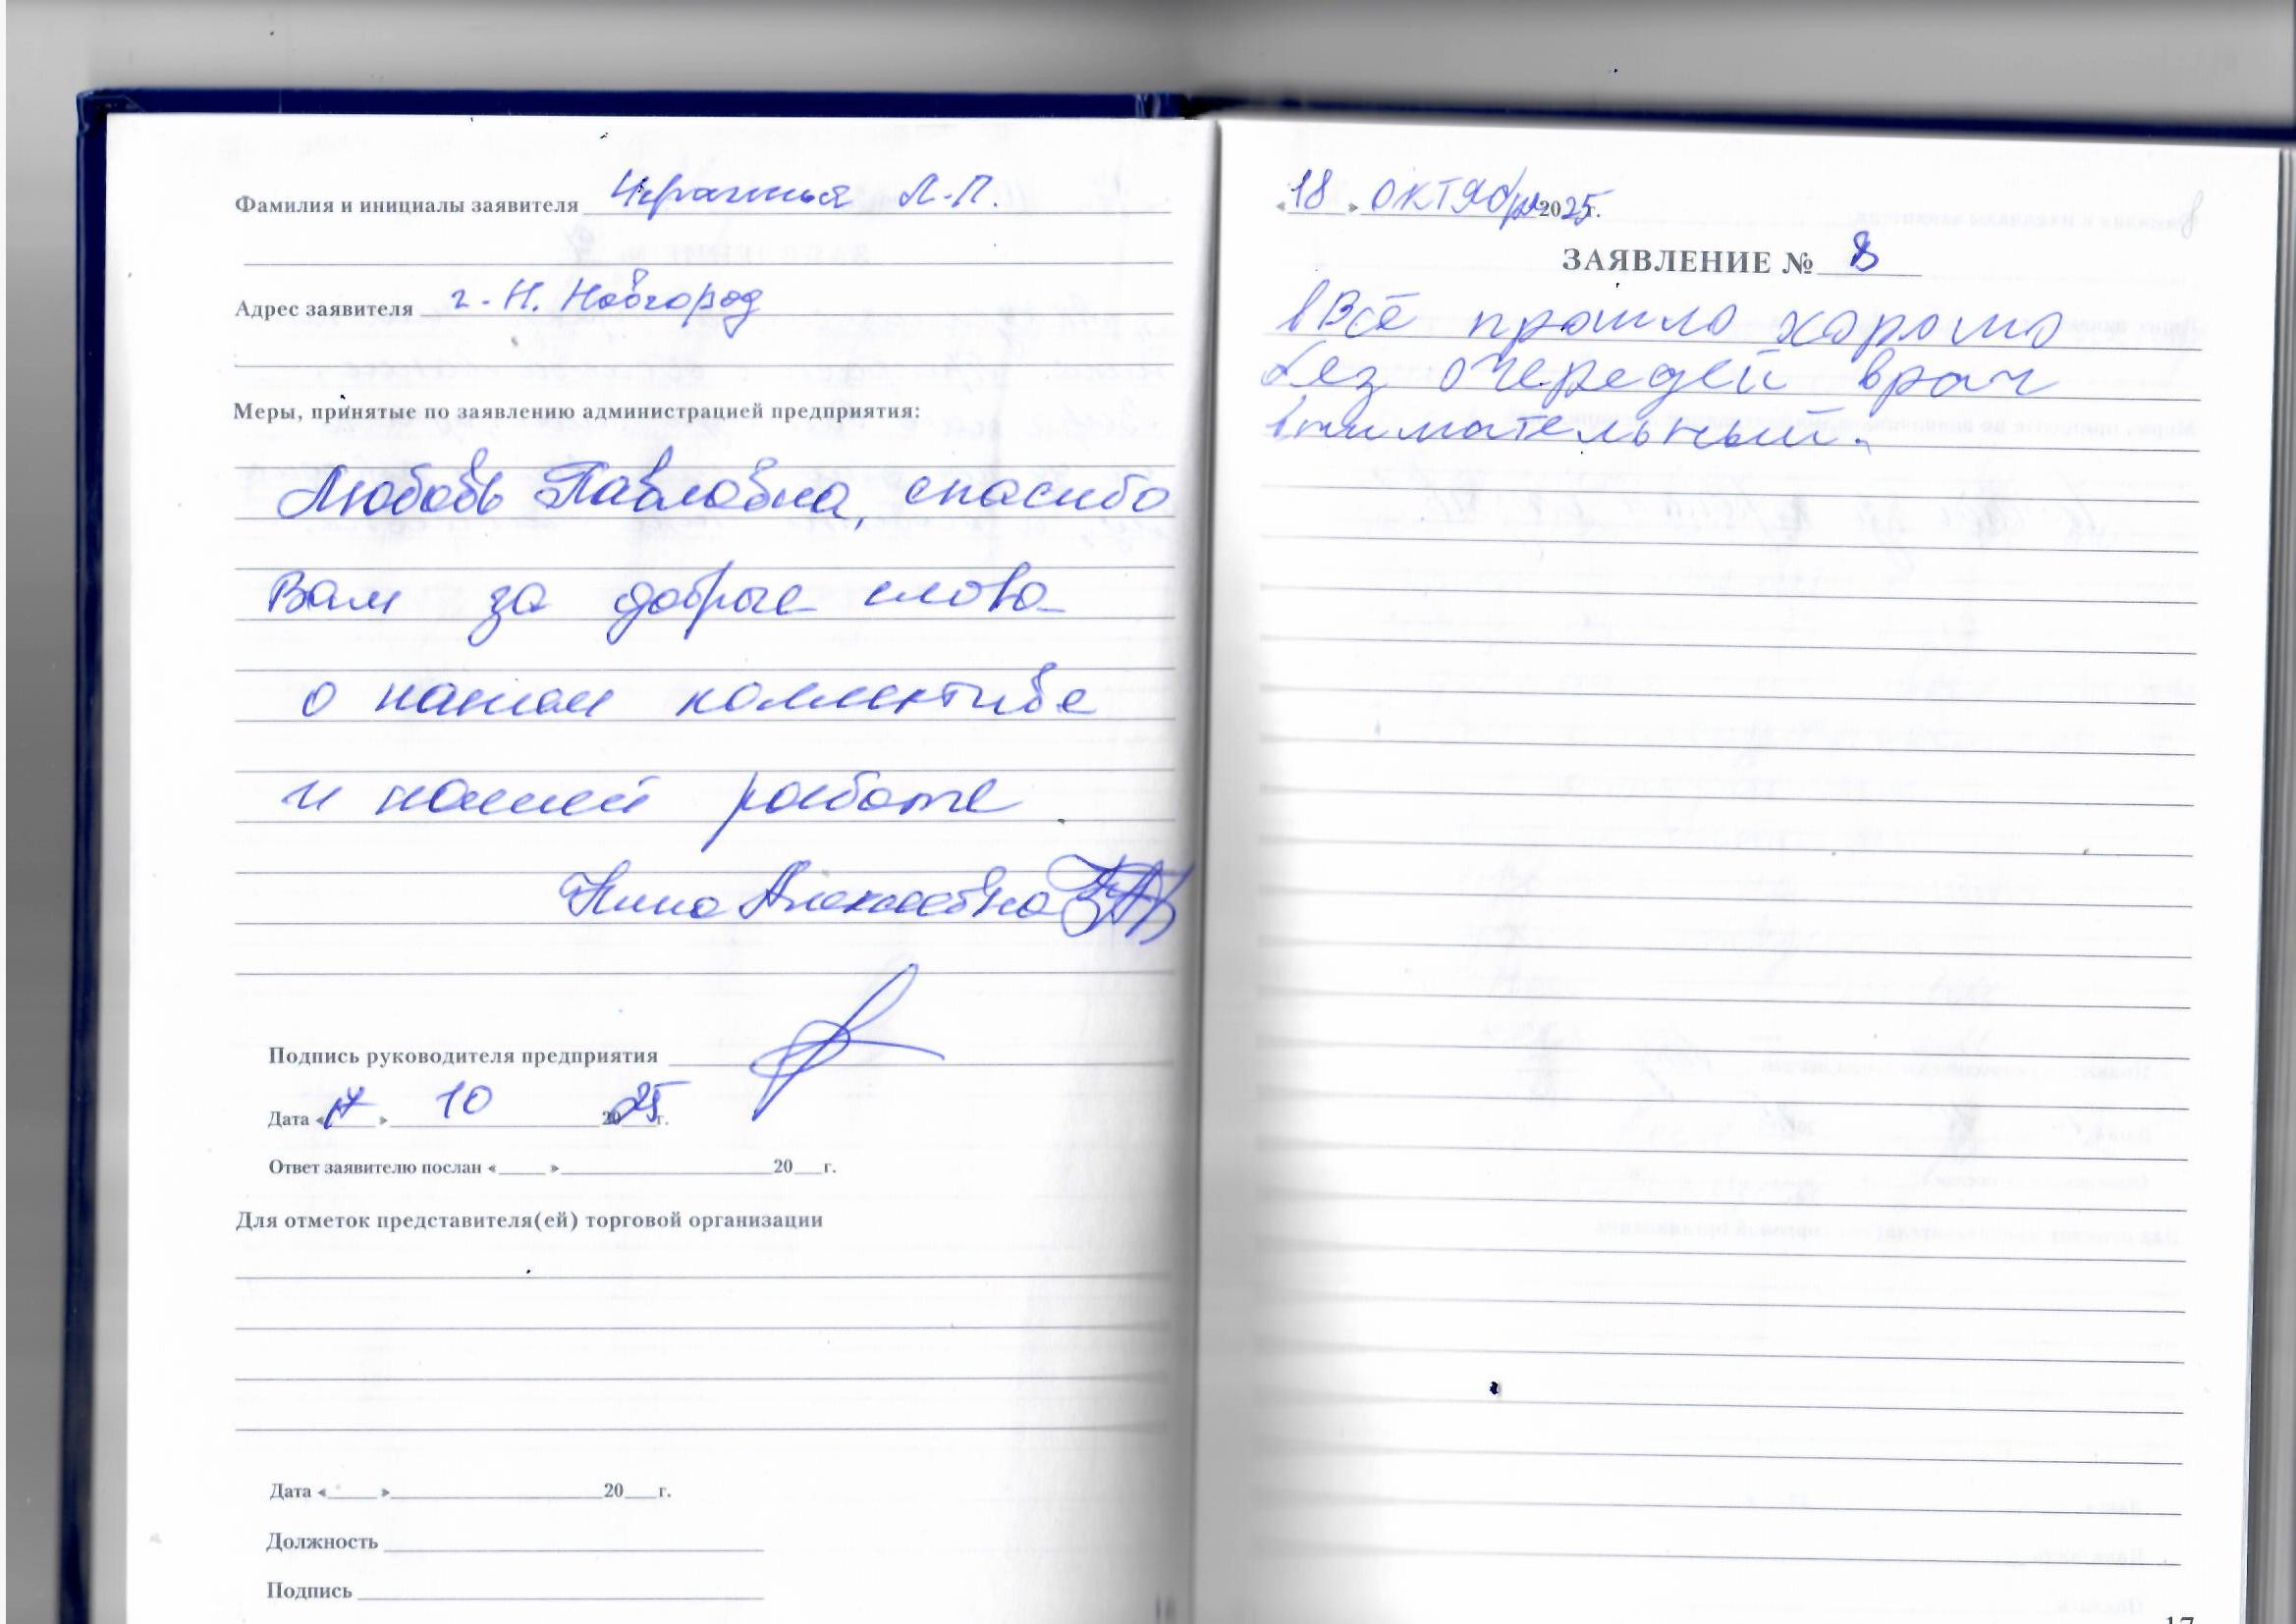 Фамилия и инициалы заявителя Л.П.
Адрес заявителя г. Н. Новгород
Меры, принятые по заявлению администрацией предприятия:
Любовь Павловна, спасибо
Вам за добрые слова
о нашем коллективе
и нашей работе
Нина Алексеевна
Подпись руководителя предприятия
Дата «17» 10 2025 г.
Ответ заявителю послан «____» ____ 20__г.
Для отметок представителя(ей) торговой организации
Дата «____» ____ 20__г.
Должность
Подпись
«18» октября 2025 г.
ЗАЯВЛЕНИЕ № 8
Всё прошло хорошо
без очередей врач
внимательный.
17